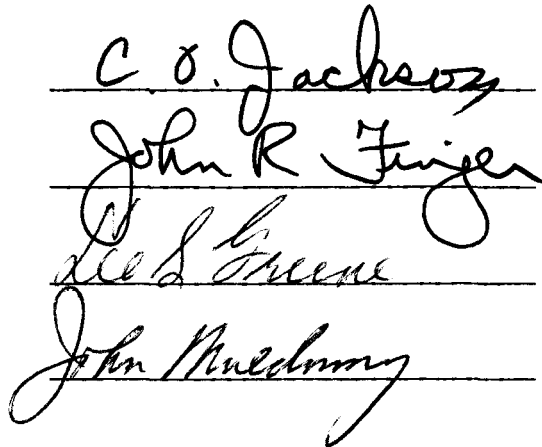 C. O. Jackson
John R Finger
Lee S Greene
John Muldowny